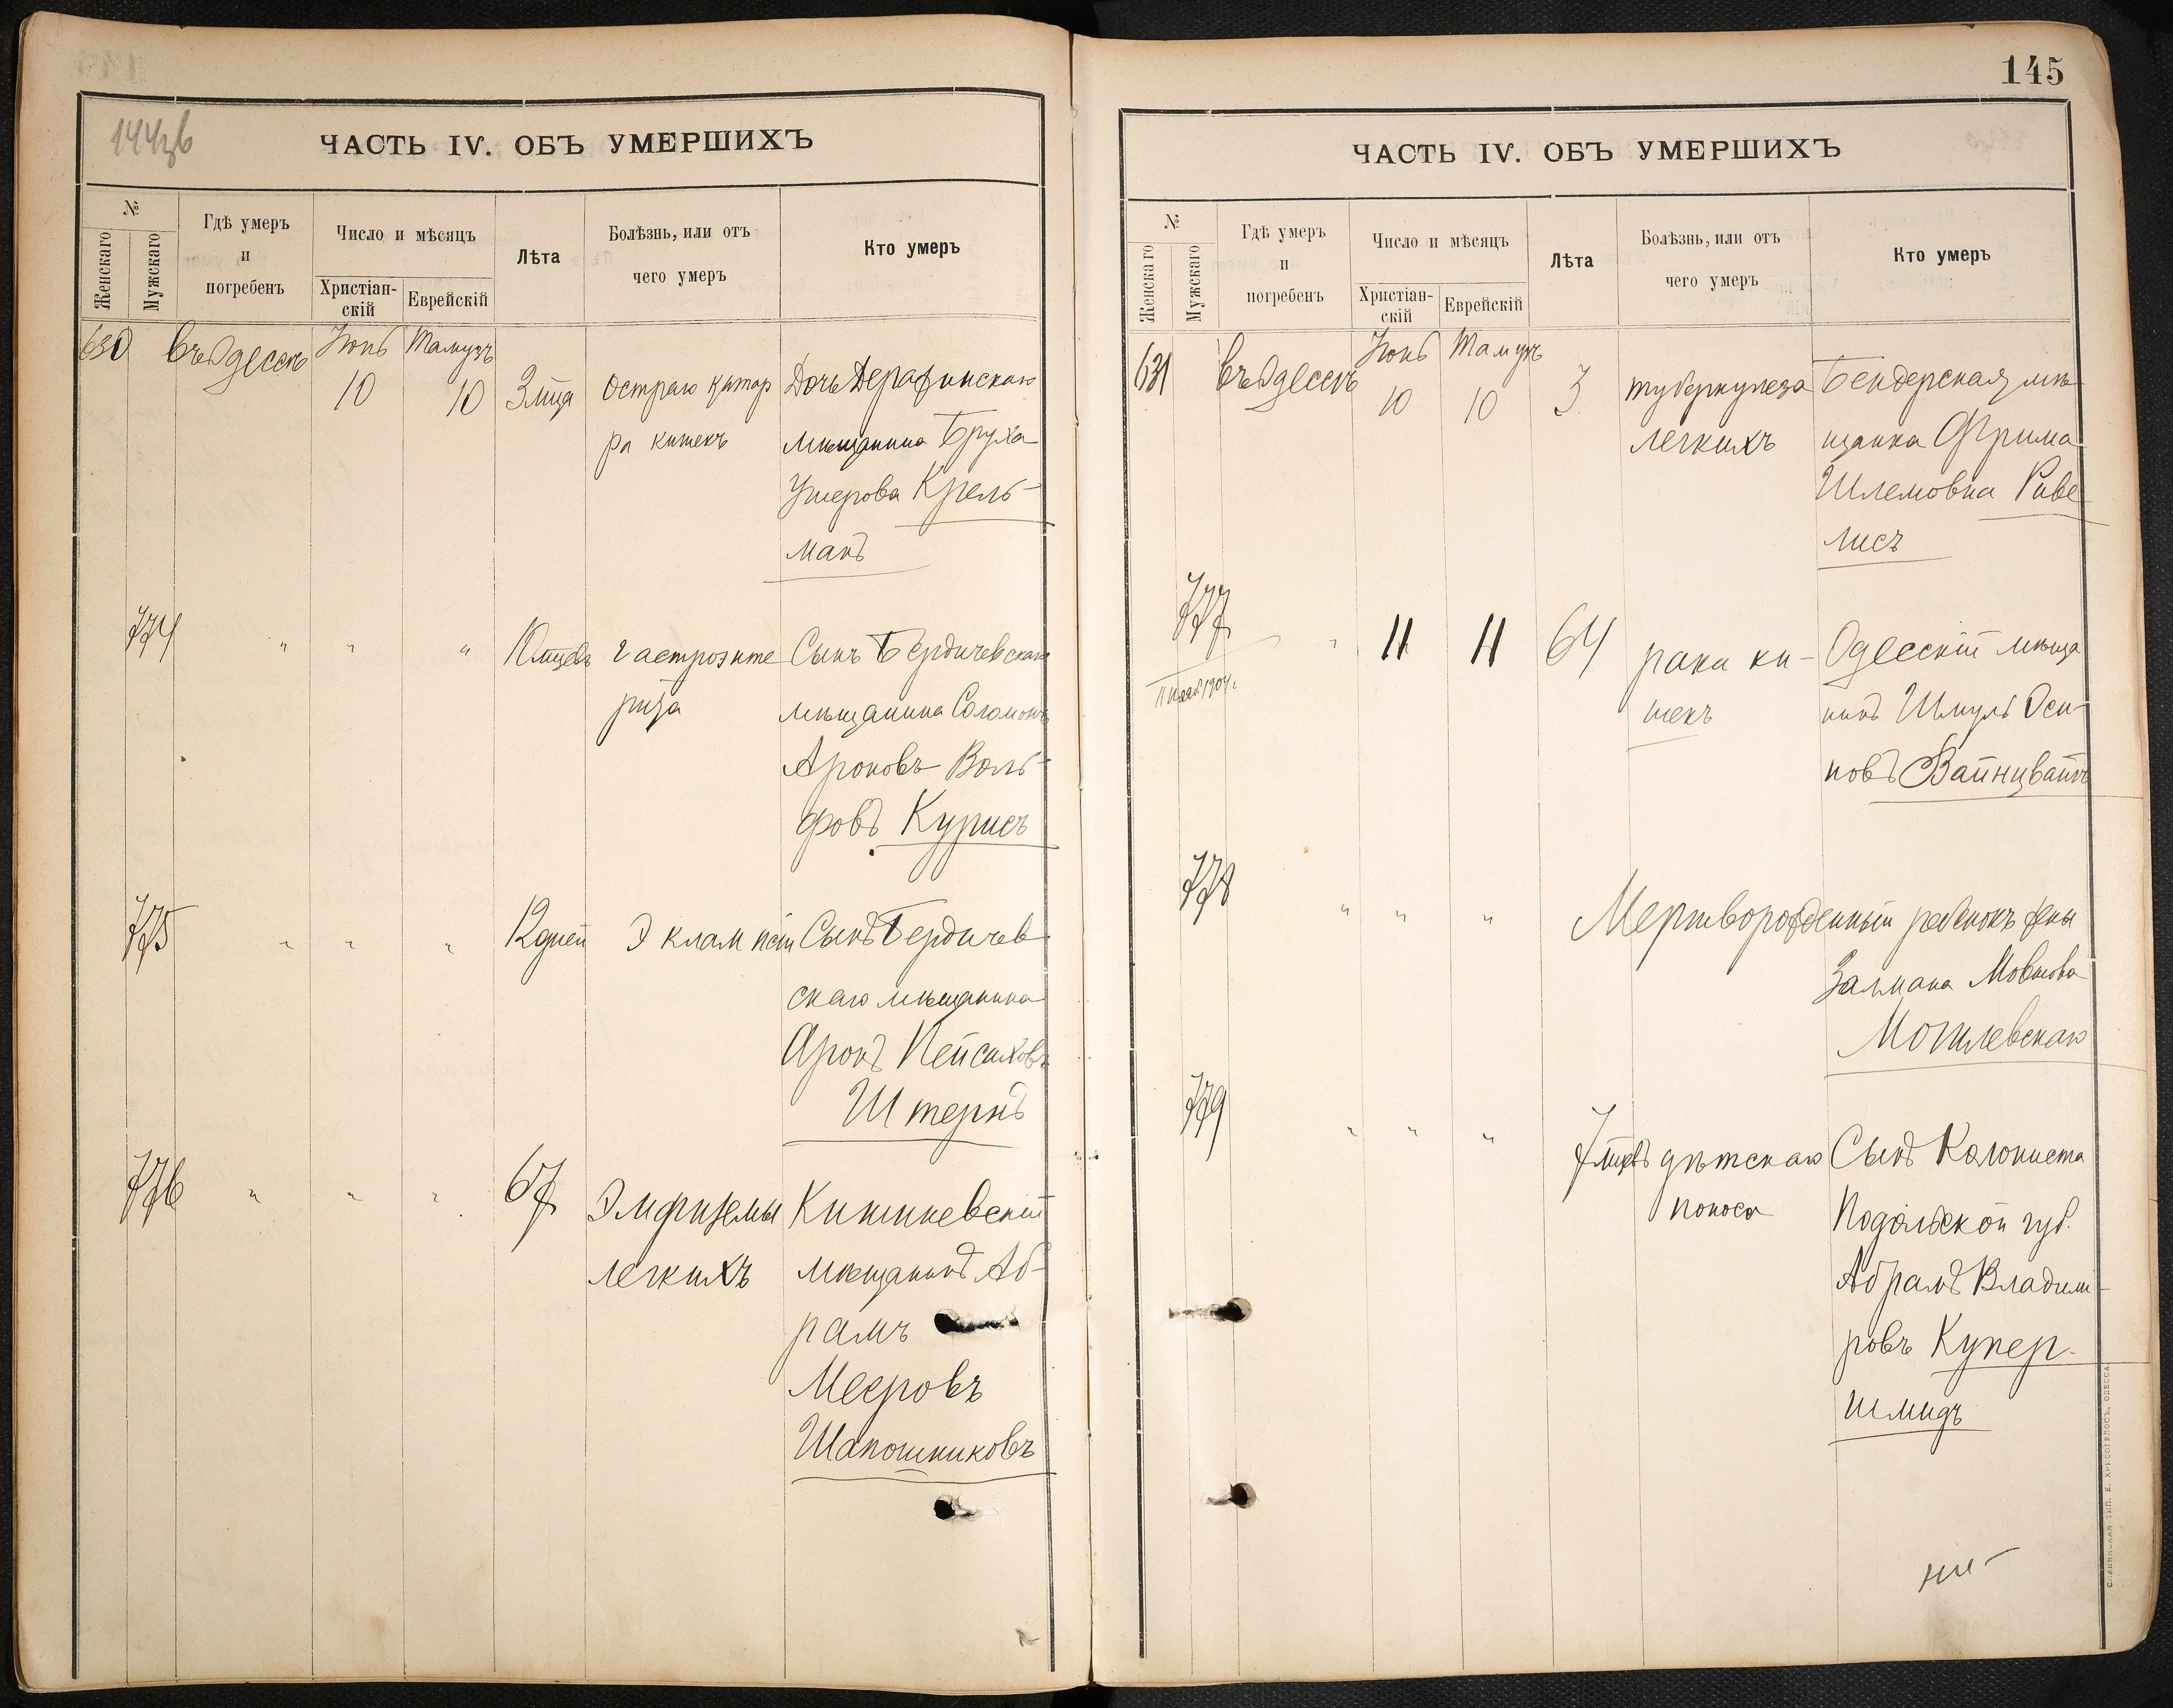 144зв
ЧАСТЬ IV. ОБЪ УМЕРШИХЪ
№
Женскаго
Мужскаго
Гдѣ умеръ
и
погребенъ
Число и мѣсяцъ
Христіан-
скій
Еврейскій
Лѣта
Болѣзнь, или отъ
чего умеръ
Кто умеръ
630 Въ Одессѣ Іюнь Тамузъ
10 10 3 мца Остраго катар Дочь
ра кишекъ мѣщанина Бруха
Ушерова Крель-
манъ
774 " " " 10 мцевъ гастроэнте Сынъ Бердичевскаго
рита мѣщанина Соломонъ
Ароновъ Воль-
фовъ Курисъ
775 " " " 12 дней Эклампсіи Сынъ Бердичев
скаго мѣщанина
Аронъ Пейсаховъ
Штернъ
776 " " " 67 Эмфиземы Кишиневскій
легкихъ мѣщанинъ Аб-
рамъ
Мееровъ
Шапошниковъ
145
ЧАСТЬ IV. ОБЪ УМЕРШИХЪ
№
Женскаго
Мужскаго
Гдѣ умеръ
и
погребенъ
Число и мѣсяцъ
Христіан-
скій
Еврейскій
Лѣта
Болѣзнь, или отъ
чего умеръ
Кто умеръ
631 Въ Одессѣ Іюнь Тамузъ
10 10 3 туберкулеза Бендерская мѣ
легкихъ щанка Фрима
Шлемовна Риве
лисъ
777 " 11 11 64 рака ки- Одесскій мѣща
шекъ нинъ Шмуль Оси-
повъ Вайнцвайгъ
1904 г.
778 " " " Мертворожденный ребенокъ жены
Залмана Мовшова
Могилевскаго
779 " " " 7 мцевъ дѣтскаго Сынъ Колониста
поноса Подольской губ.
Абрамъ Владими-
ровъ Купер-
шмидъ
СЛАВЯНСКАЯ ТИП. Е. ХРИСОГЕЛОСЪ, ОДЕССА.